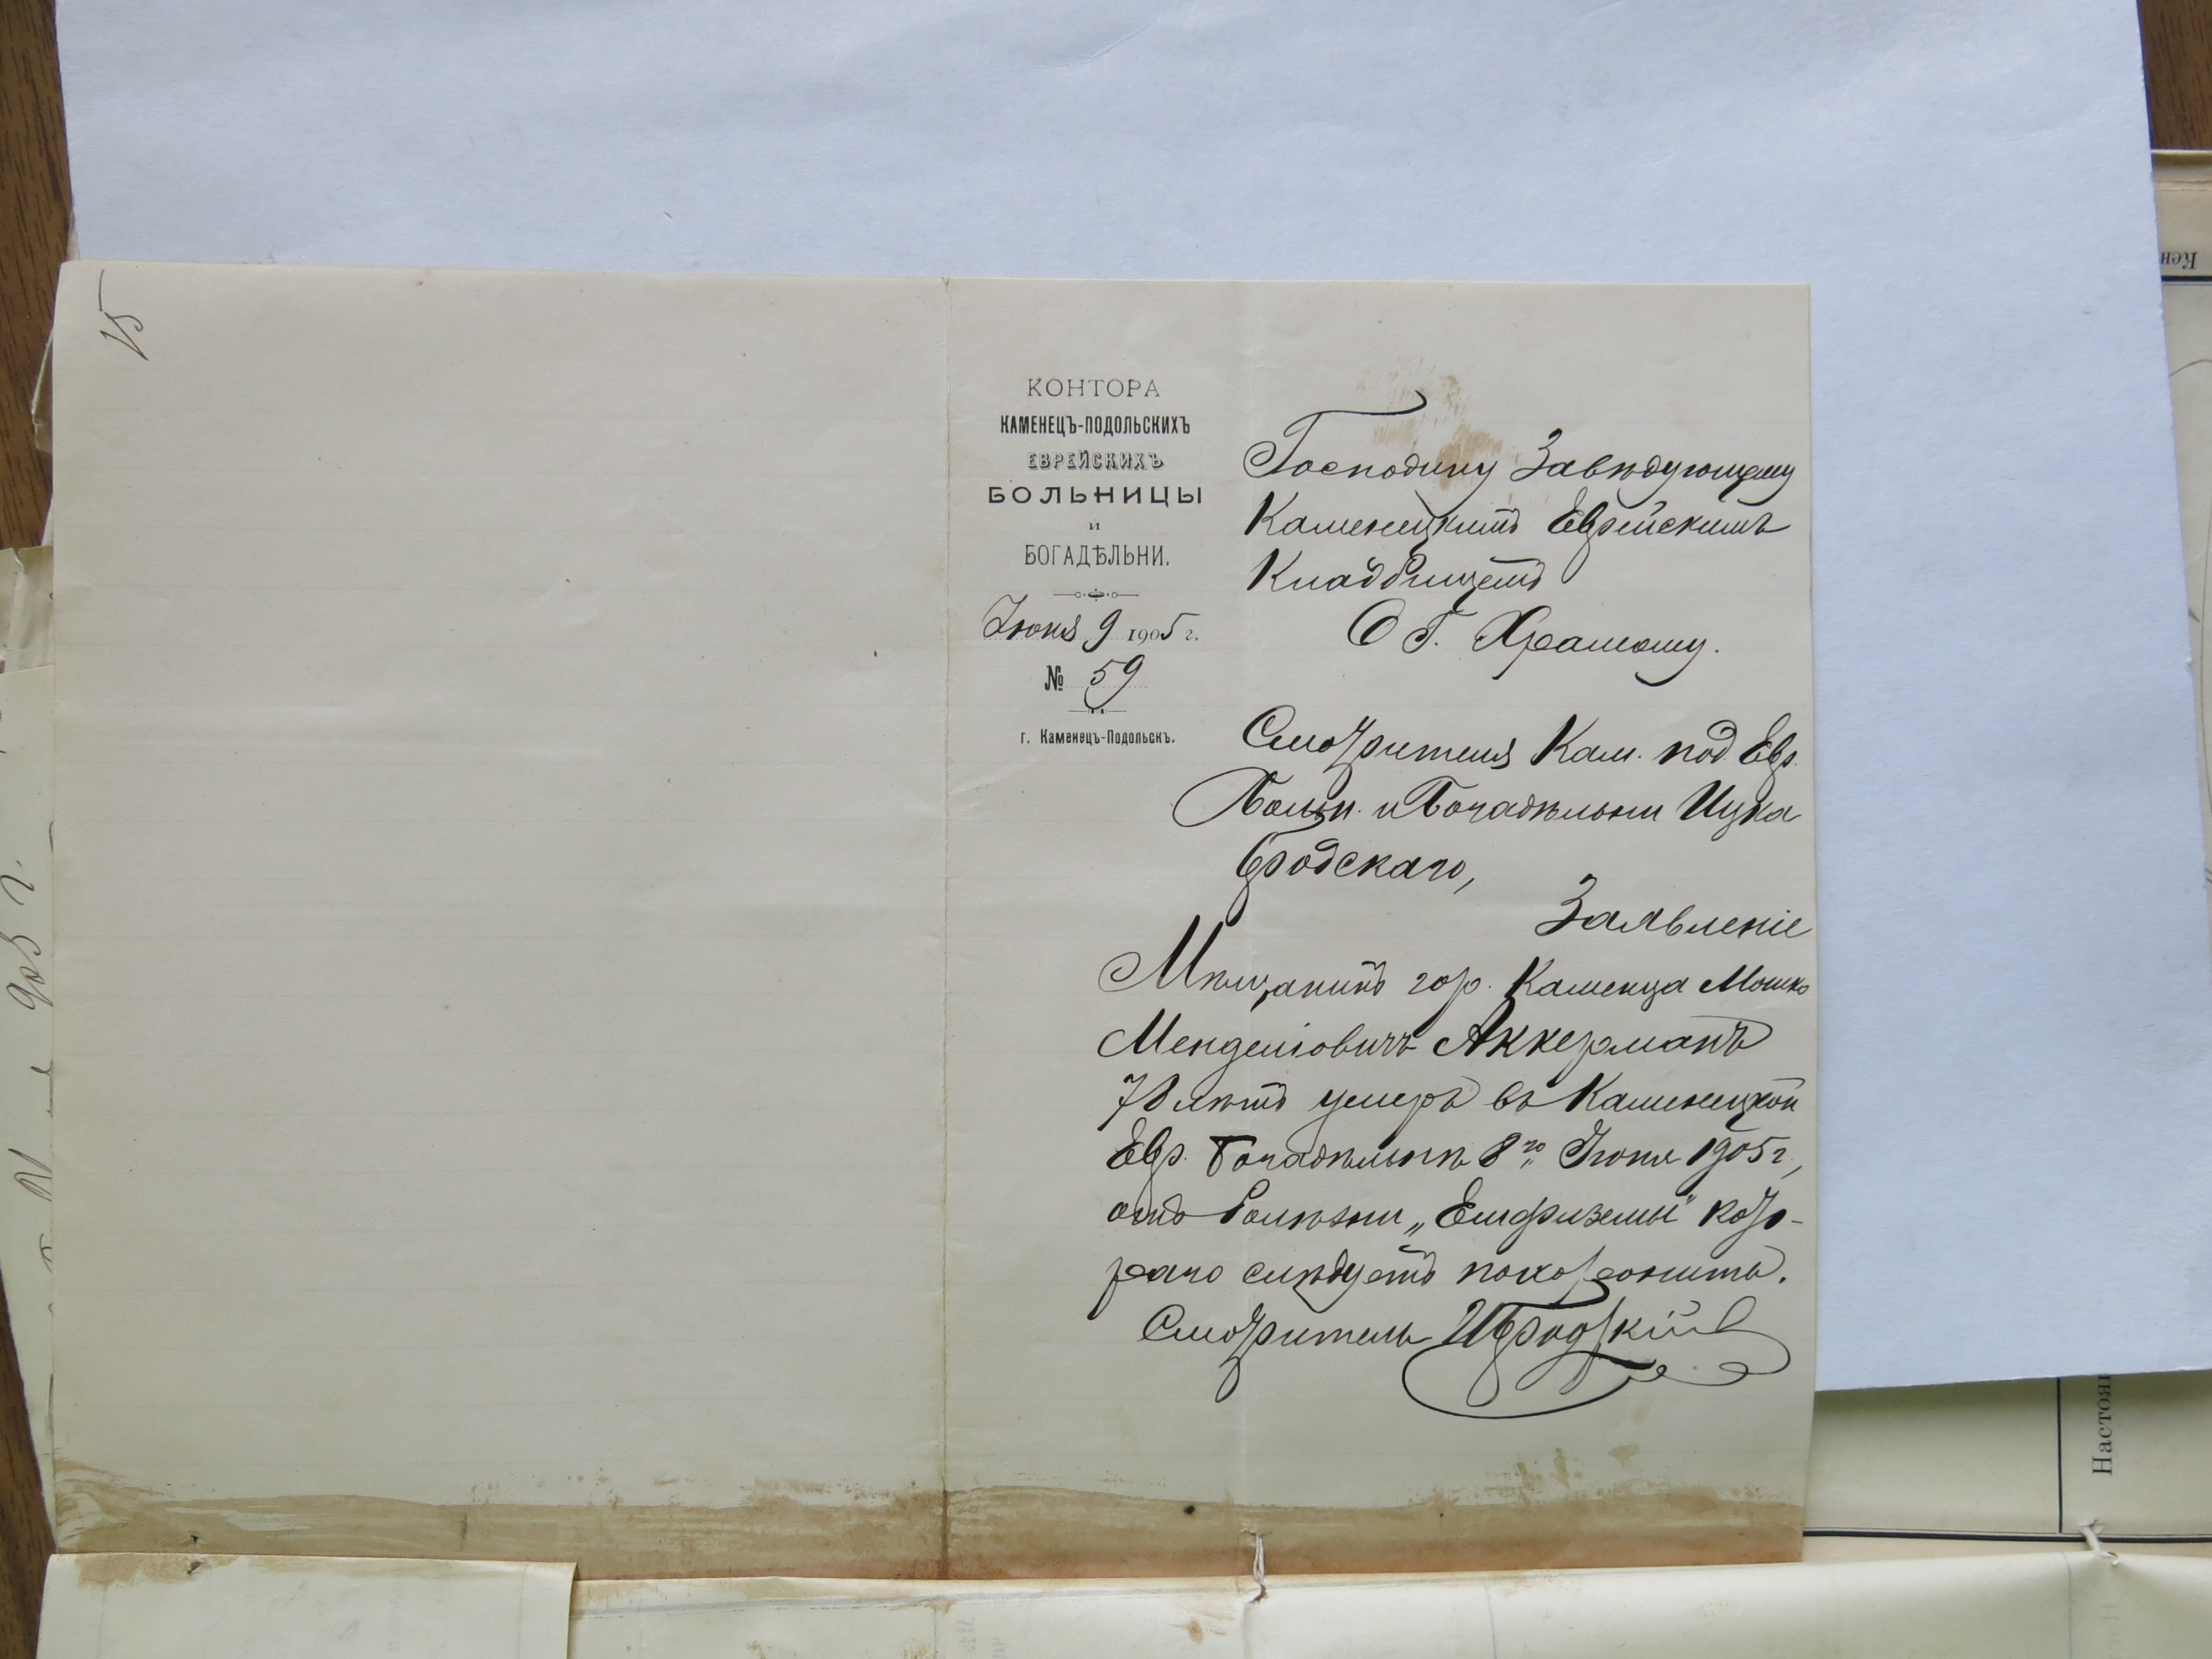 15
КОНТОРА
КАМЕНЕЦЪ-ПОДОЛЬСКИХЪ
ЕВРЕЙСКИХЪ
БОЛЬНИЦЫ
и
БОГАДѢЛЬНИ.
Іюня 9 1905 г.
№ 59
г. Каменецъ-Подольскъ.
Господину Завѣдующему
Каменецкимъ Еврейскимъ
Кладбищемъ
О Г.
Смотрителя Кам. под. Евр.
Больн. и Богадѣльни Ицка
Бродскаго,
Заявленіе
Мѣщанинъ гор. Каменца Мошко
Менделіовичъ Аккерманъ
78 лѣтъ умеръ въ Каменецкой
Евр. Богадѣльнѣ 8го Іюня 1905 г,
отъ болѣзни „Емфиземы" кото-
раго слѣдуетъ похоронить.
Смотритель И Бродскій
905 г.
Кен
Настоя